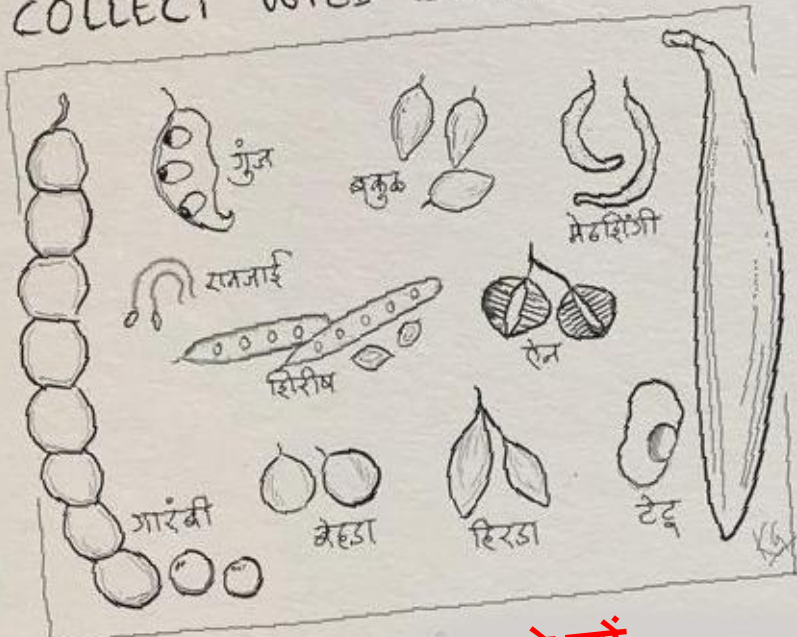 COLLECT WILD
गुंज
बकुळ
मेढशिंगी
रानजाई
शिरीष
ऐन
गारंबी
बेहडा
हिरडा
टेटू